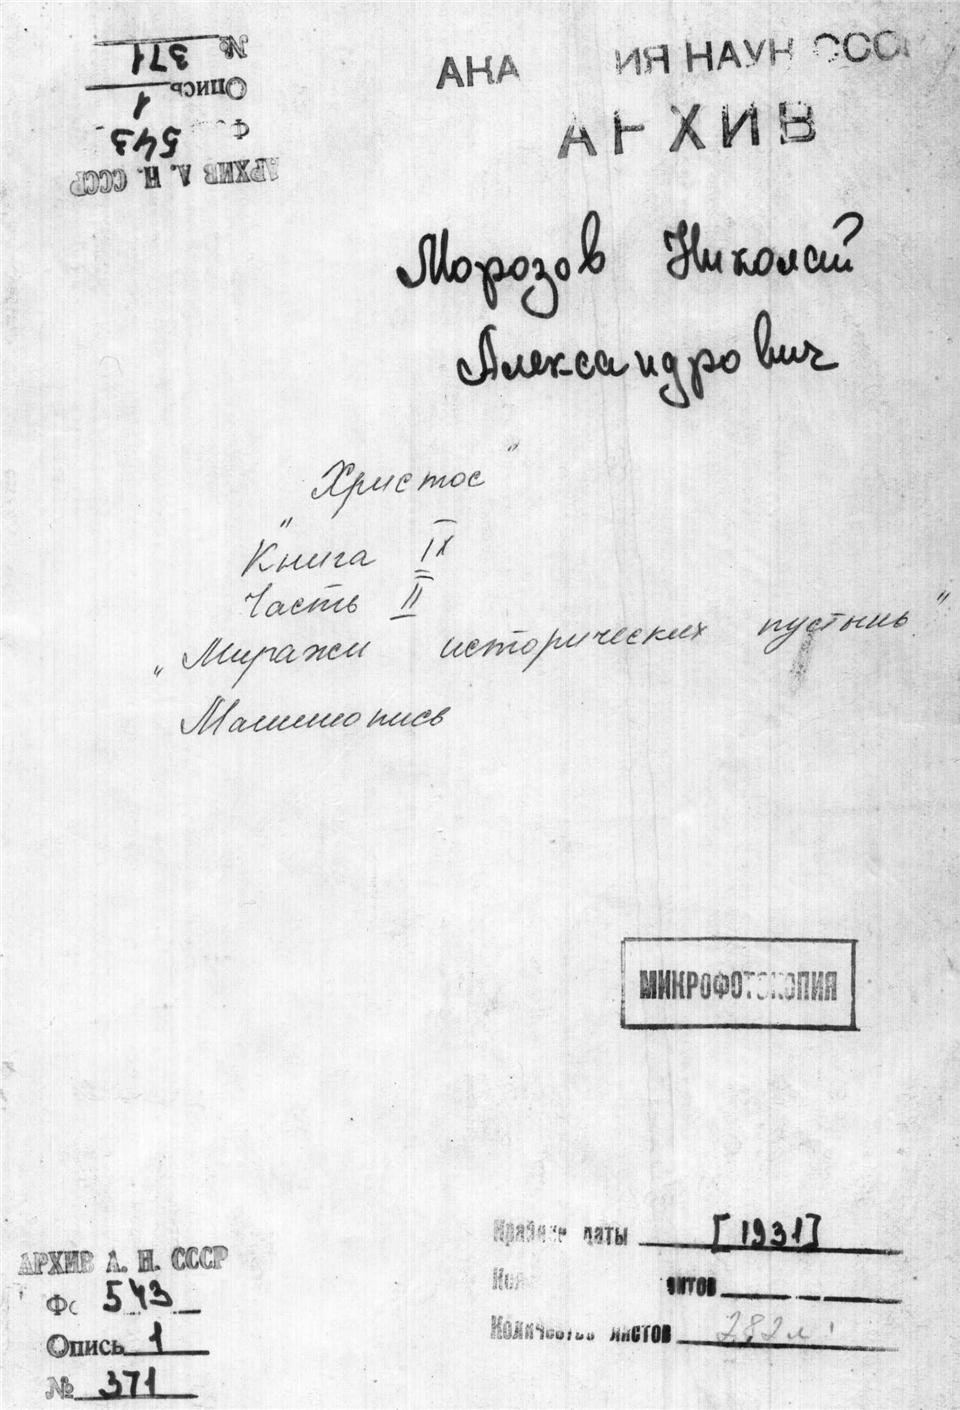 № 371
Опись 1
Фо 543
АРХИВ А. Н. СССР
АКА ИЯ НАУК СССР
АРХИВ
Морозов Николай
Александрович
"Христос"
Книга IX
Часть II
„Миражи исторических пустынь"
Машинопись
МИКРОФОТОКОПИЯ
Крайние даты [1931]
Количество листов 282 л.
АРХИВ А. Н. СССР
Фо 543
Опись 1
№ 371